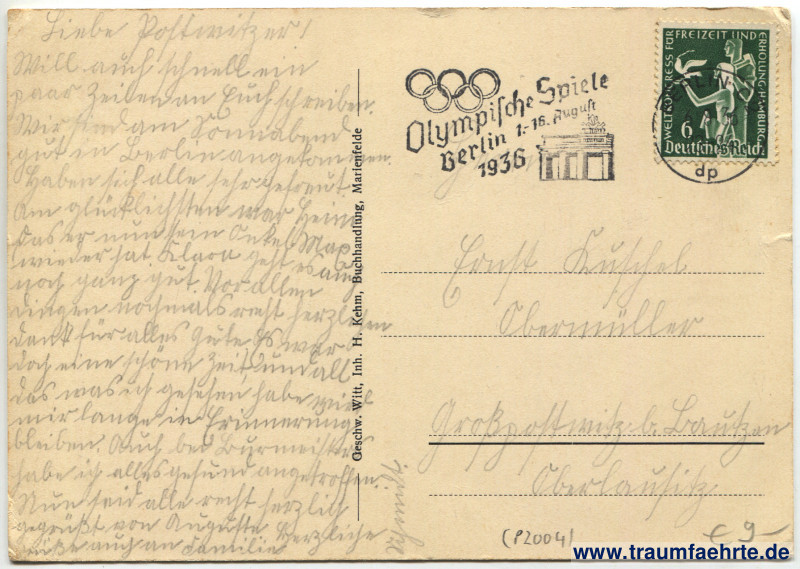 Liebe Postwitzer!
Will auch schnell ein
paar Zeilen an Euch schreiben.
Wir sind am Sonnabend
gut in Berlin angekommen.
Haben sich alle sehr gefreut
Am glücklichsten war Heini
das er nun sein Onkel Max
wieder hat. Klara geht es auch
noch ganz gut. Vor allen
dingen nochmals recht herzlichen
dank für alles Gute. Es war
doch eine schöne Zeit, und all
das was ich gesehen habe wird
mir lange in Erinnerung
bleiben. Auch bei Burmeisters
habe ich alles gesund angetroffen.
Nun seid alle recht herzlich
gegrüßt von Auguste. Herzliche
Grüße auch an Familie
Schmidt.
Geschw. Witt, Inh. H. Kehm, Buchhandlung, Marienfelde
Olympische Spiele
Berlin 1.-16. August
1936
WELTKONGRESS FÜR FREIZEIT UND ERHOLUNG·HAMBURG
6
Deutsches Reich
BERLIN
dp
Ernst Kuschel
Obermüller
Großpostwitz b. Bautzen
Oberlausitz
(P2004)
€ 9-
www.traumfaehrte.de